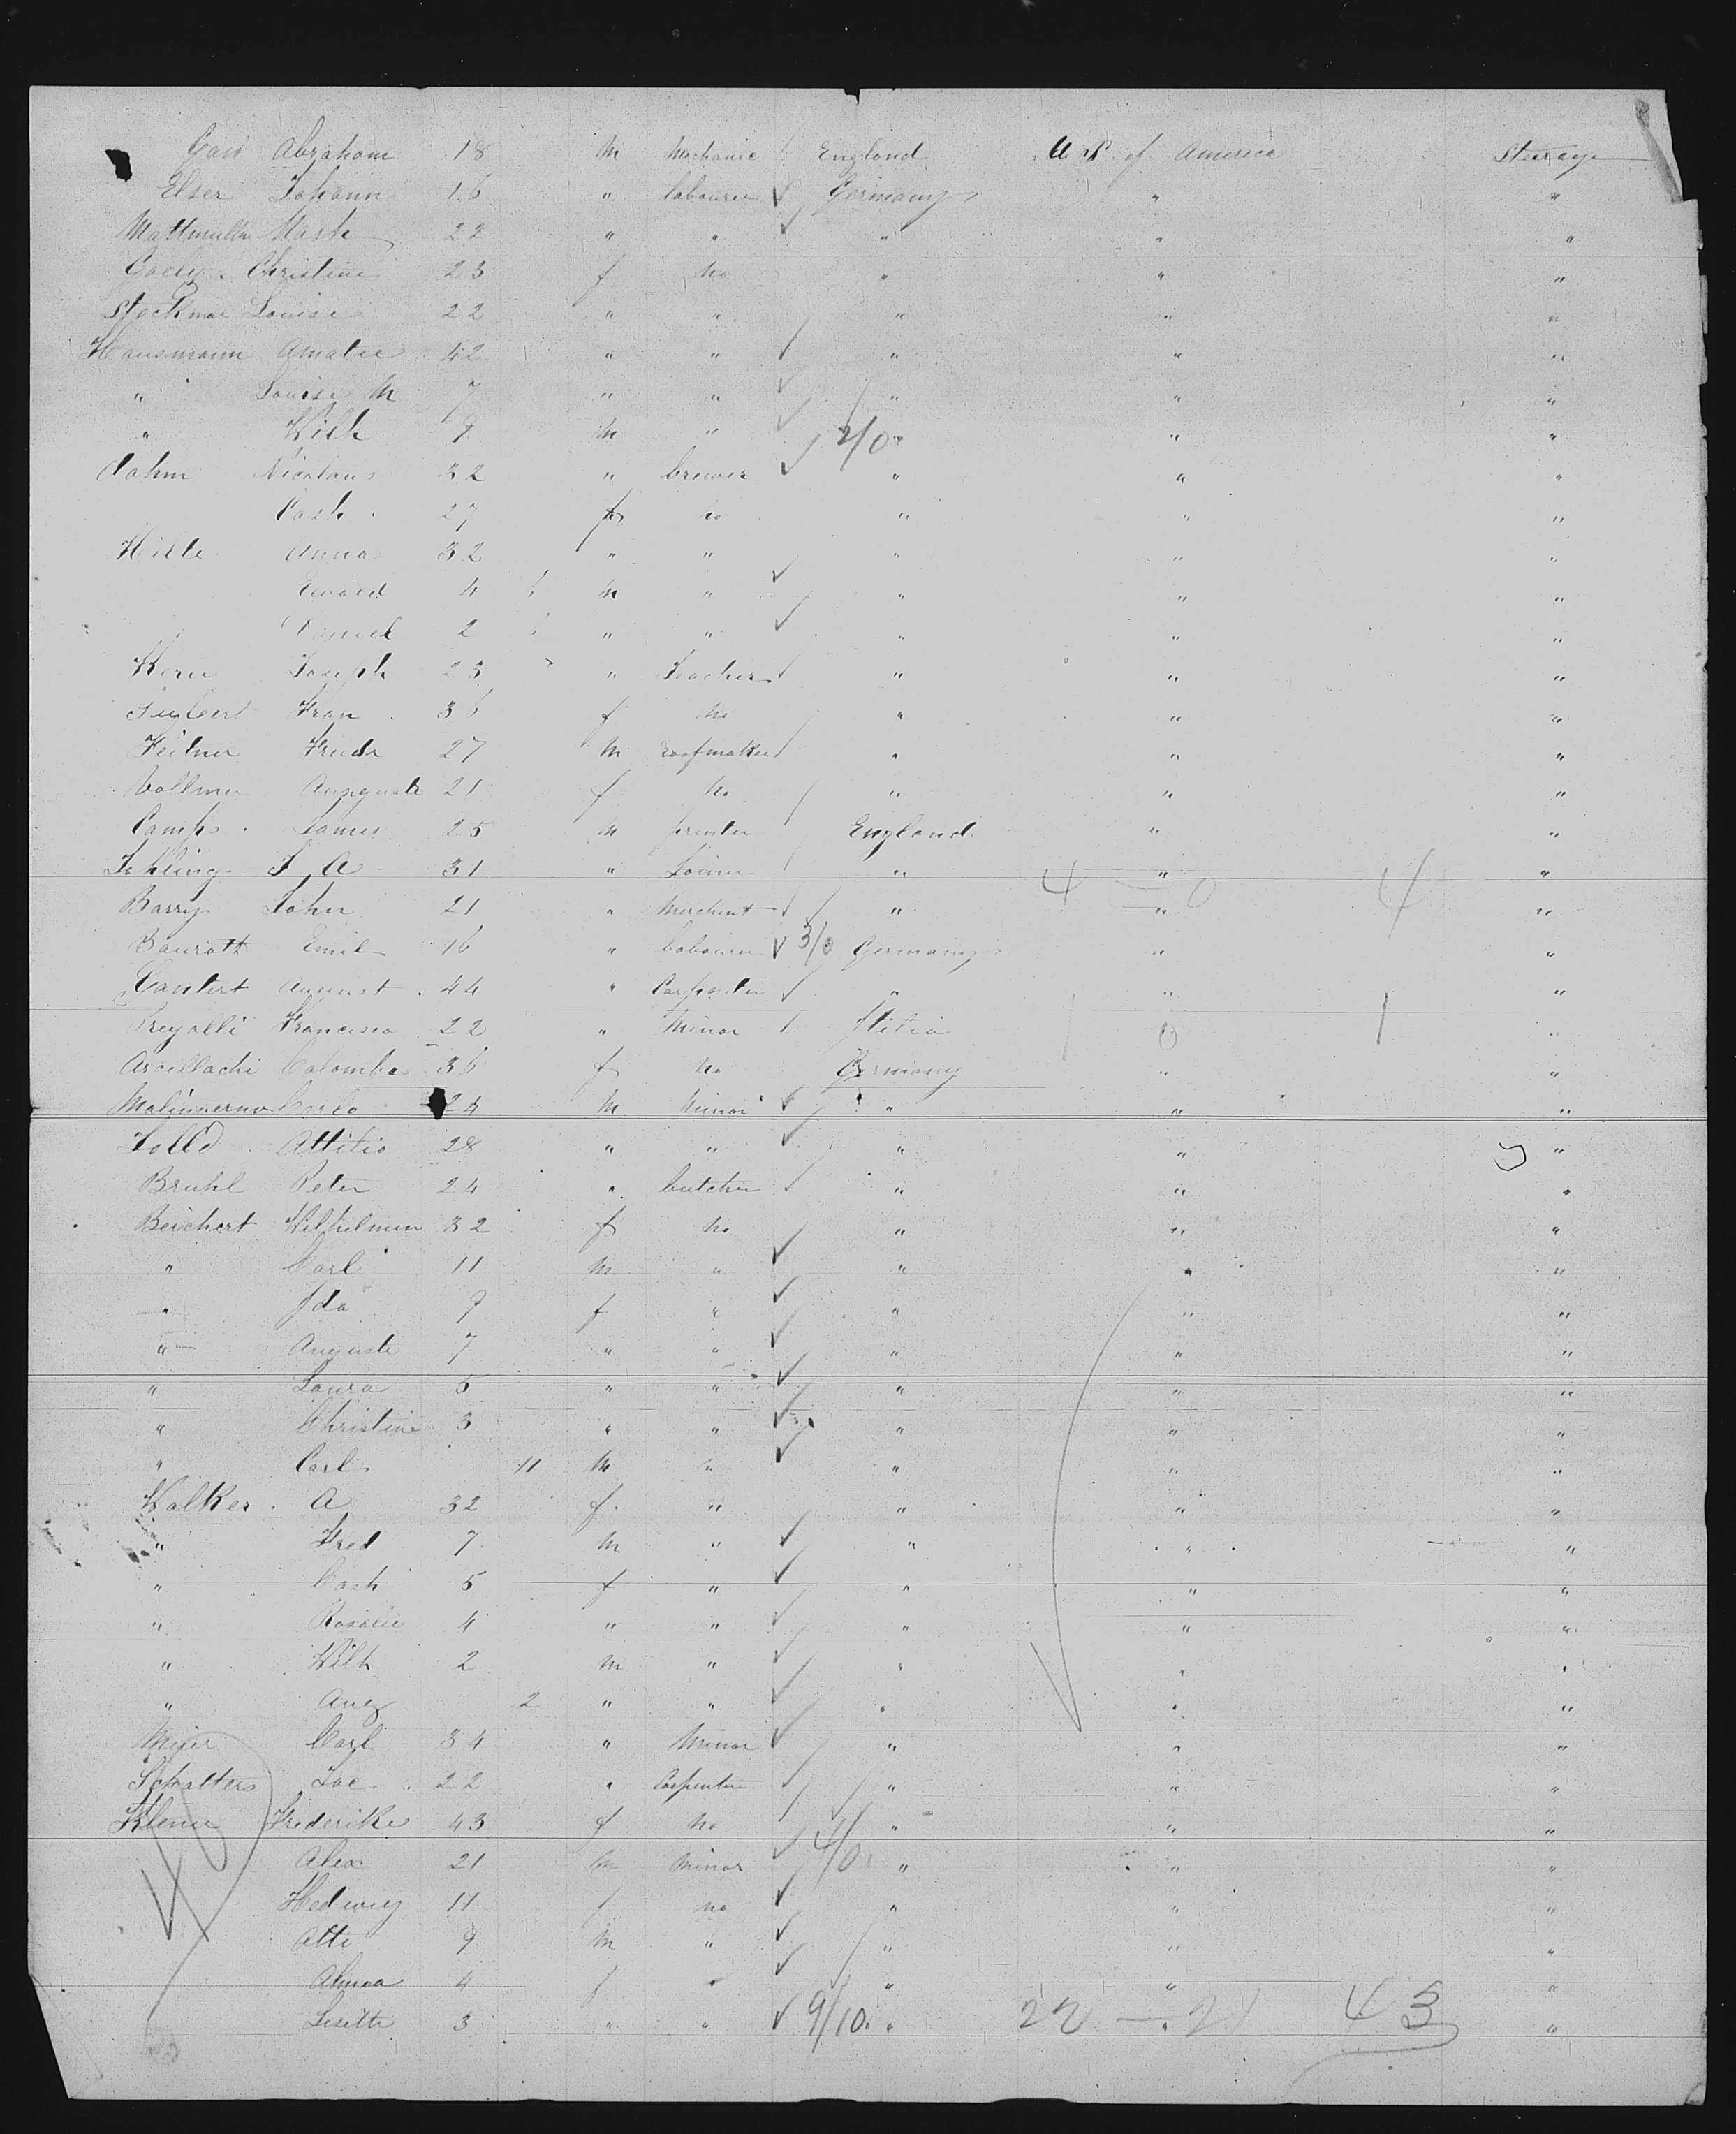 Gais Abraham 18 M Mechanic England U S of America Steerage
Elser Johann 16 " labourer Germany " "
Mattmulle Math 22 " " " " "
Goely Christine 23 f no " " "
Stockmar Louise 22 " " " " "
Hausmann Amalie 42 " " " " "
" Louise M 7 " " " " "
" Wilh 9 M " 2/0 " " "
Dahm Nicolaus 32 " brewer " " "
Cath 27 f no " " "
Hilte Anna 32 " " " " "
Eward 4 M " " " "
Daniel 2 " " " " "
Kern Joseph 23 " Teacher " " "
Fran 36 f no " " "
Feilner Friedr 27 M roofmaker " " "
Vollmer Auguste 21 f no " " "
Camp James 25 M printer England " "
Jehling J A 31 " Joiner " " "
4 — 0 4
Barry John 21 " Merchent " " "
Baurott Emil 16 " labourer 3/0 Germany " "
Lantert August 44 " Carpenter " " "
Pregalli Francisco 22 " Minor 1 0 1 "
Arcellachi Colomba 36 f no Germany " "
Malinverno Carlo 24 M Minor " " "
Attilio 28 " " " " "
Bruhl Peter 24 " butcher " " "
Beichert Wilhelmin 32 f no " " "
" Carl 11 M " " " "
" Ida 9 f " " " "
" Auguste 7 " " " " "
" Laura 5 " " " " "
" Christine 3 " " " " "
" Carl 11 M " " " "
Walker A 32 f " " " "
" Fred 7 M " " " "
" Cath 5 f " " " "
" Rosalie 4 " " " " "
" Wilh 2 M " " " "
" Aug 2 " " " " "
Meier Carl 34 " Minor " " "
Schatters Jac 22 " Carpenter " " "
Klemm Frederike 43 f no " " "
Alex 21 M Minor 4/0 " " "
Hedwig 11 f no " " "
Otto 9 M " " " "
Almaa 4 f " " " "
Lisette 3 " " 9/10 " 22 — 21 43 "